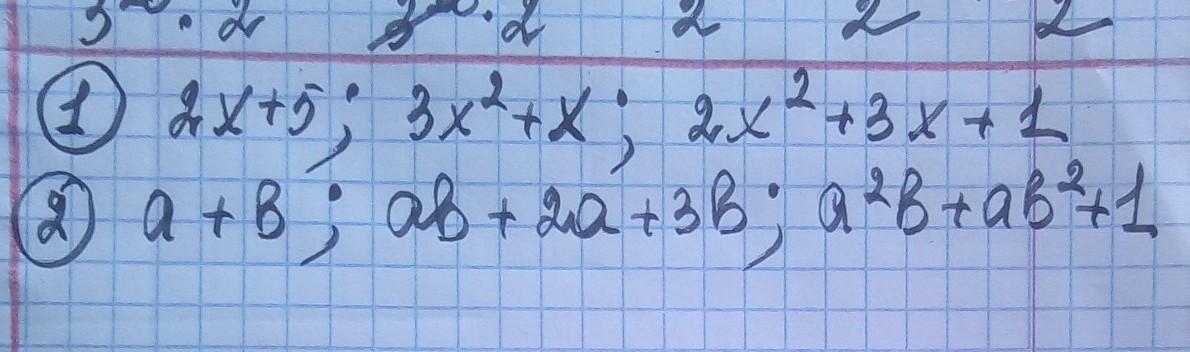 3 · 2 · 2 2 2 2
① 2x+5; 3x²+x; 2x²+3x+1
② a+b; ab+2a+3b; a²b+ab²+1